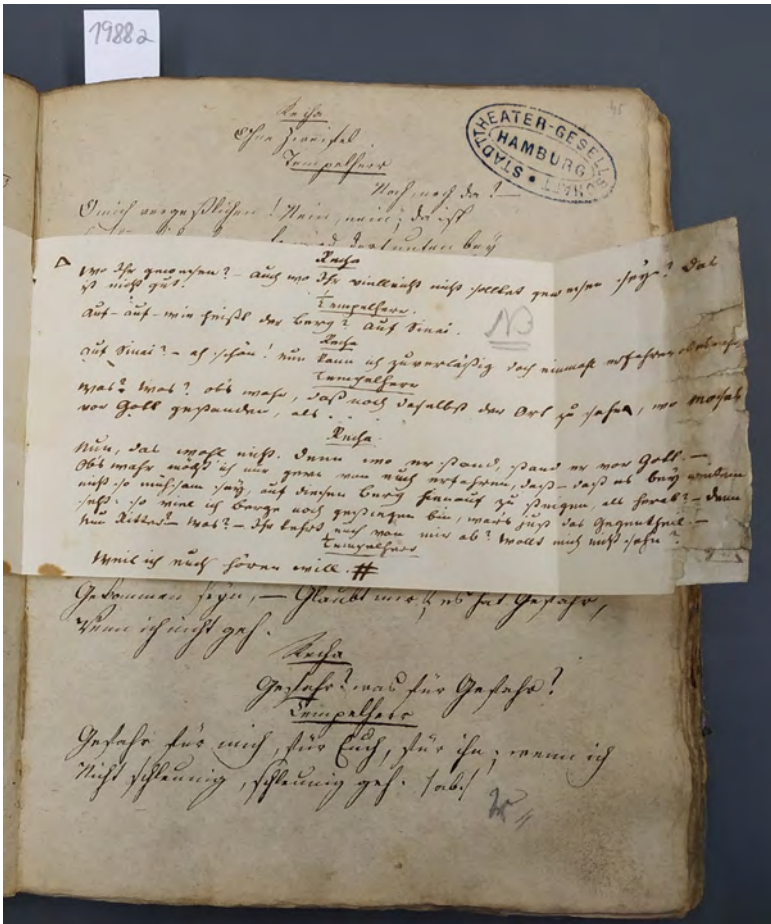 19882
45
Recha
Ohne Zweifel
Tempelherr
Noch, noch da? –
O mich vergeßlichen! Nein, nein; da ist
dortunten bey
STADTTHEATER-GESELLSCHAFT
HAMBURG
Recha
Wo Ihr gewesen? – Auch wo Ihr vielleicht nicht solltet gewesen seyn? Das
ist nicht gut.
Tempelherr.
Auf – auf – wie heißt der Berg? Auf Sinai.
NB
Recha
Auf Sinai? – ah schön! nun kann ich zuverläßig doch einmahl erfahren ob es wahr,
Tempelherr
Was? Was? obs wahr, daß noch daselbst der Ort zu sehn, wo Moses
vor Gott gestanden, als . .
Recha.
Nun, das wohl nicht. Denn wo er stand, stand er vor Gott. –
Obs wahr möcht ich nur gern von euch erfahren, daß – daß es bey weitem
nicht so mühsam sey, auf diesen Berg hinauf zu steigen, als herab? – denn
seht: so viel ich Berge noch gestiegen bin, wars just das Gegentheil. –
Nun Ritter – Was? – Ihr kehrt euch von mir ab? Wollt mich nicht sehn?
Tempelherr
Weil ich euch hören will. #
Gekommen seyn, – Glaubt mir, es hat Gefahr,
Wenn ich nicht geh.
Recha
Gefahr? was für Gefahr?
Tempelherr
Gefahr für mich, für Euch, für ihn; wenn ich
Nicht schleunig, schleunig geh. /ab/